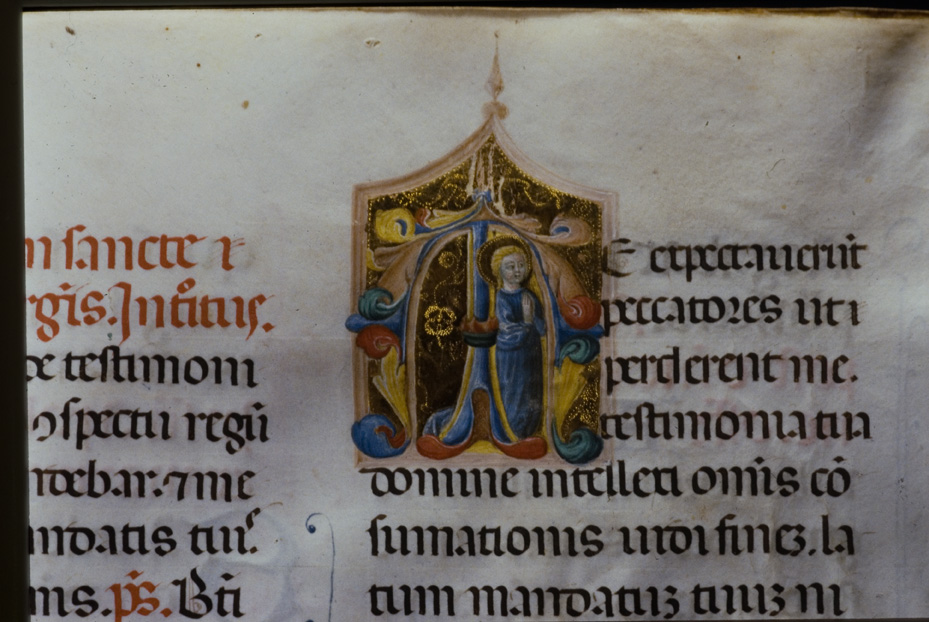 n sancte ⁊
rgis. Introitus.
de testimoni
ospectu regū
ndebar. ⁊ me
andatis tuis.
nis. p̄s. Bt̄i
ME expectauerūt
peccatores ut
perderent me.
testimonia tua
domine intellexi om̄is cō
sumationis uidi finez. la
tum mandatuz tuuz ni